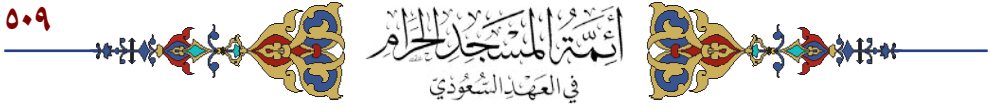 ٥٠٩
أئمة المسجد الحرام
في العهد السعودي